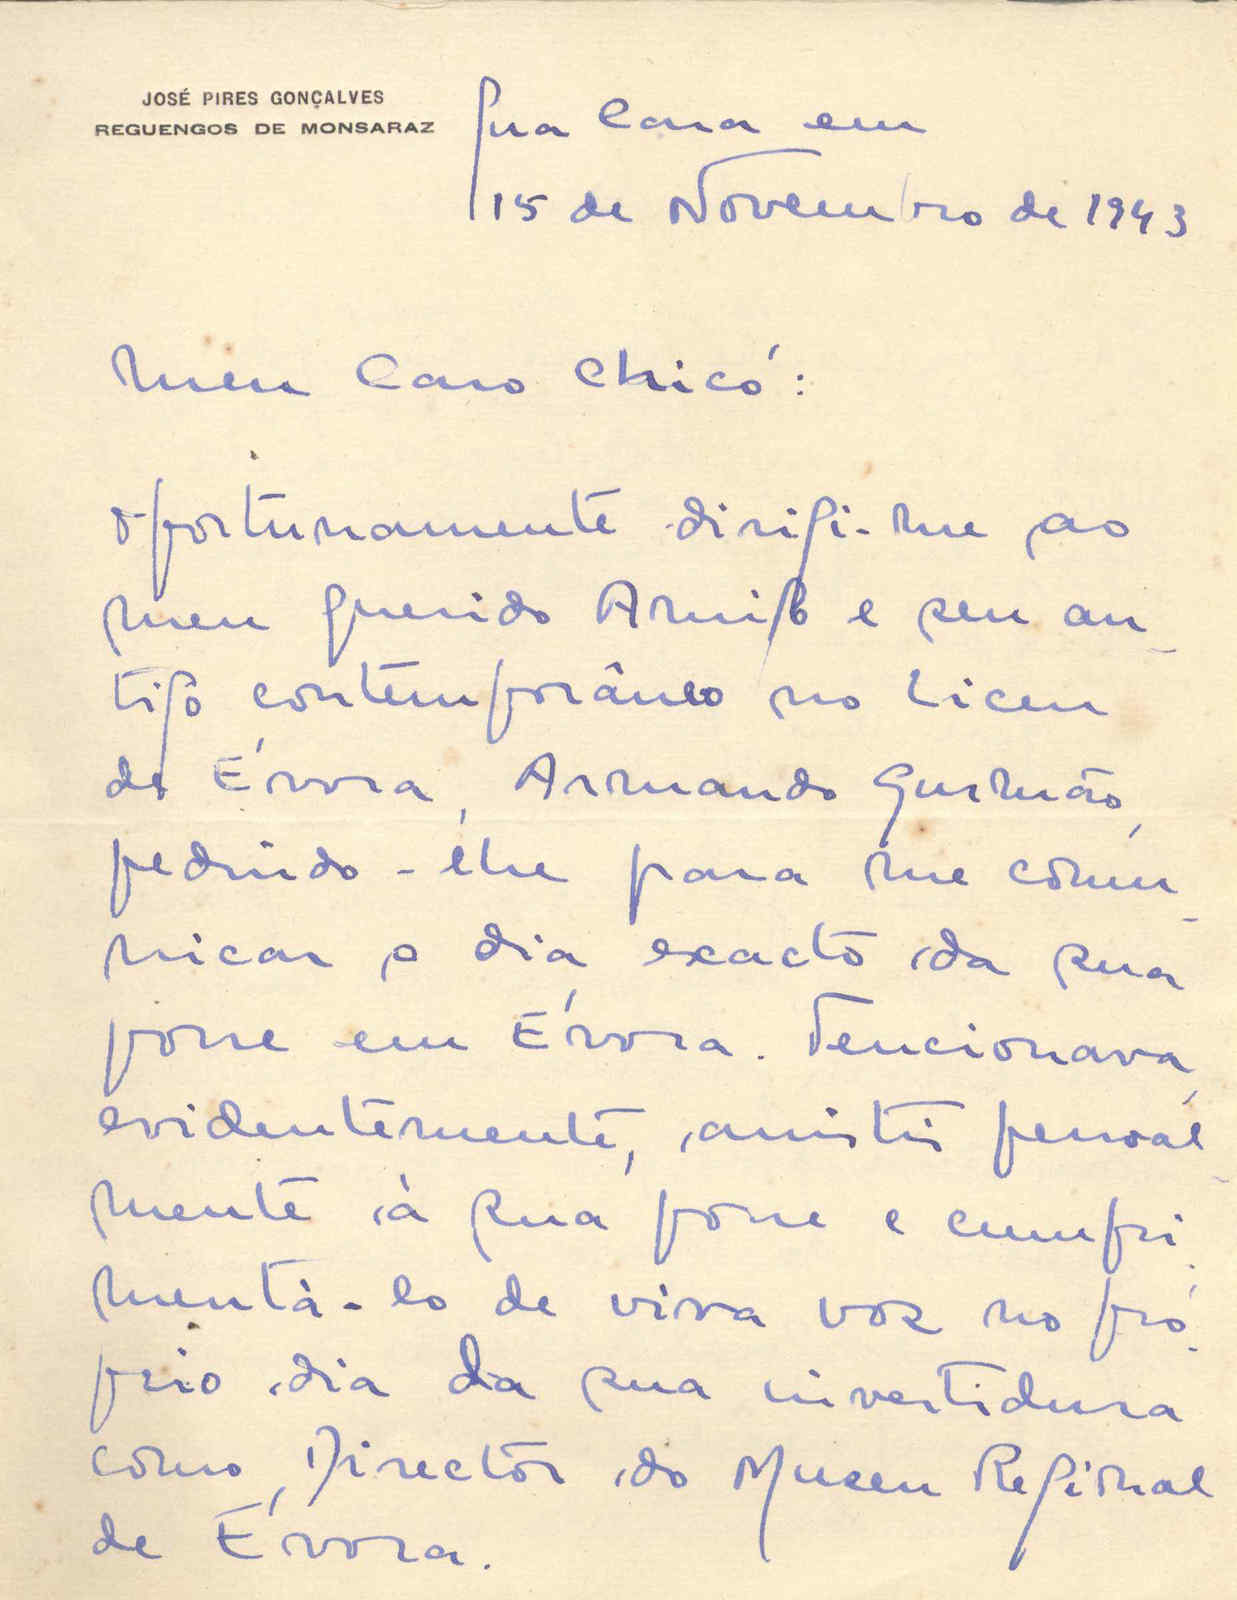 JOSÉ PIRES GONÇALVES
REGUENGOS DE MONSARAZ
Sua Casa em
15 de Novembro de 1943
Meu Caro Chicó:
Oportunamente dirigi-me ao
meu querido Amigo e seu an-
tigo contemporâneo no Liceu
de Évora, Armando Gusmão,
pedindo-lhe para me comu-
nicar o dia exacto da sua
posse em Évora. Tencionava,
evidentemente, assistir pessoal-
mente à sua posse e cumpri-
mentá-lo de viva voz no pró-
prio dia da sua investidura
como Director do Museu Regional
de Évora.